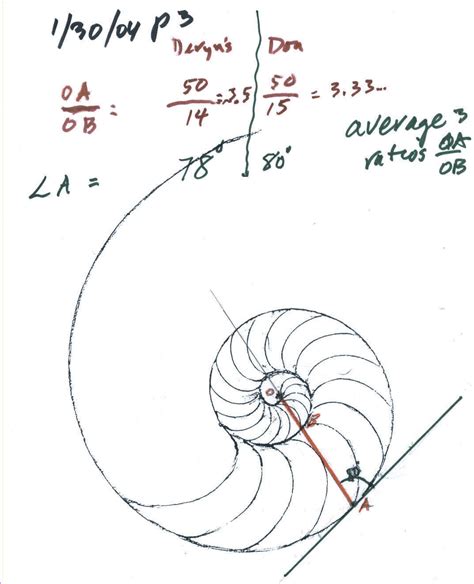 1/30/04 P 3
Deryn's Don
OA/OB = 50/14 = 3.5 50/15 = 3.33...
average 3
ratios OA/OB
∠A = 78° 80°
O
B
A